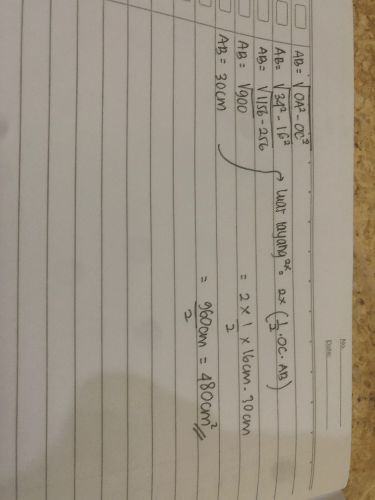 No.
Date:
AB = √OA² - OC²
AB = √34² - 16²
AB = √1156 - 256
AB = √900
AB = 30cm
→ luas layang²× = 2× (1/2 · OC · AB)
= 2 × 1/2 × 16cm · 30cm
= 960cm/2 = 480cm²